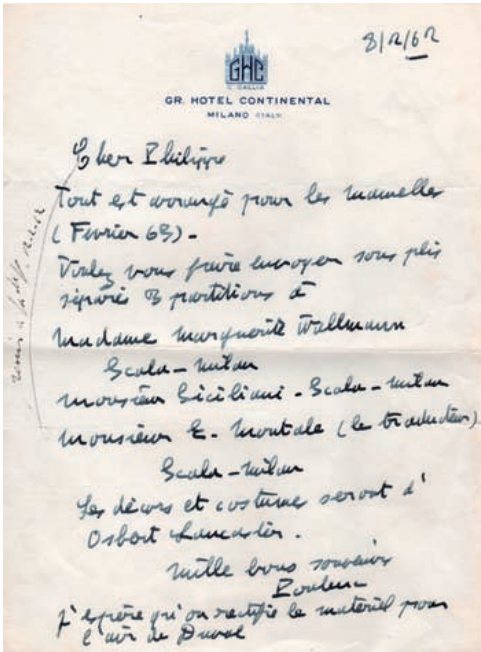 8/2/62
GHC
C. GALLIA
GR. HOTEL CONTINENTAL
MILANO (ITALY)
Cher Philippe
Tout est arrangé pour les Mamelles
(Février 63) -
Voulez vous faire envoyer sous plis
séparés 3 partitions à
Madame Marguerite Wallmann
Scala - Milan
Monsieur Siciliani - Scala - Milan
Monsieur E. Montale (le traducteur)
Scala - Milan
Les décors et costumes seront d'
Osbert Lancaster.
Mille bons souvenirs
Poulenc
J'espère qu'on rectifie le matériel pour
l'air de Duval